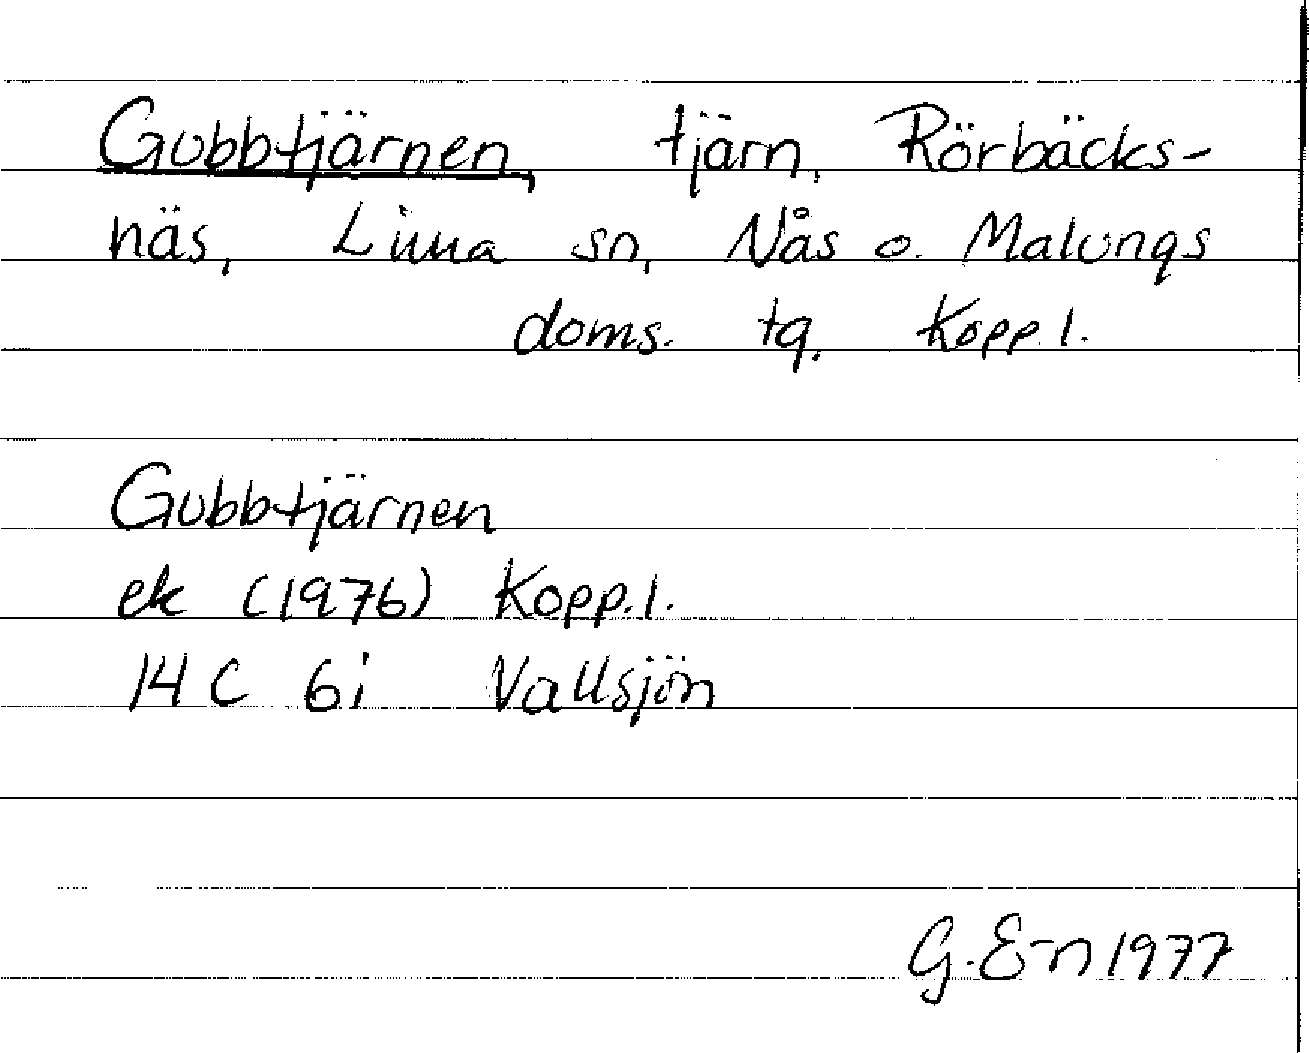 Gubbtjärnen, tjärn, Rörbäcks-
näs, Lima sn, Nås o. Malungs
doms. tg. Kopp.l.
Gubbtjärnen
ek (1976) Kopp.l.
14 C 6i Vallsjön
G. E-n 1977